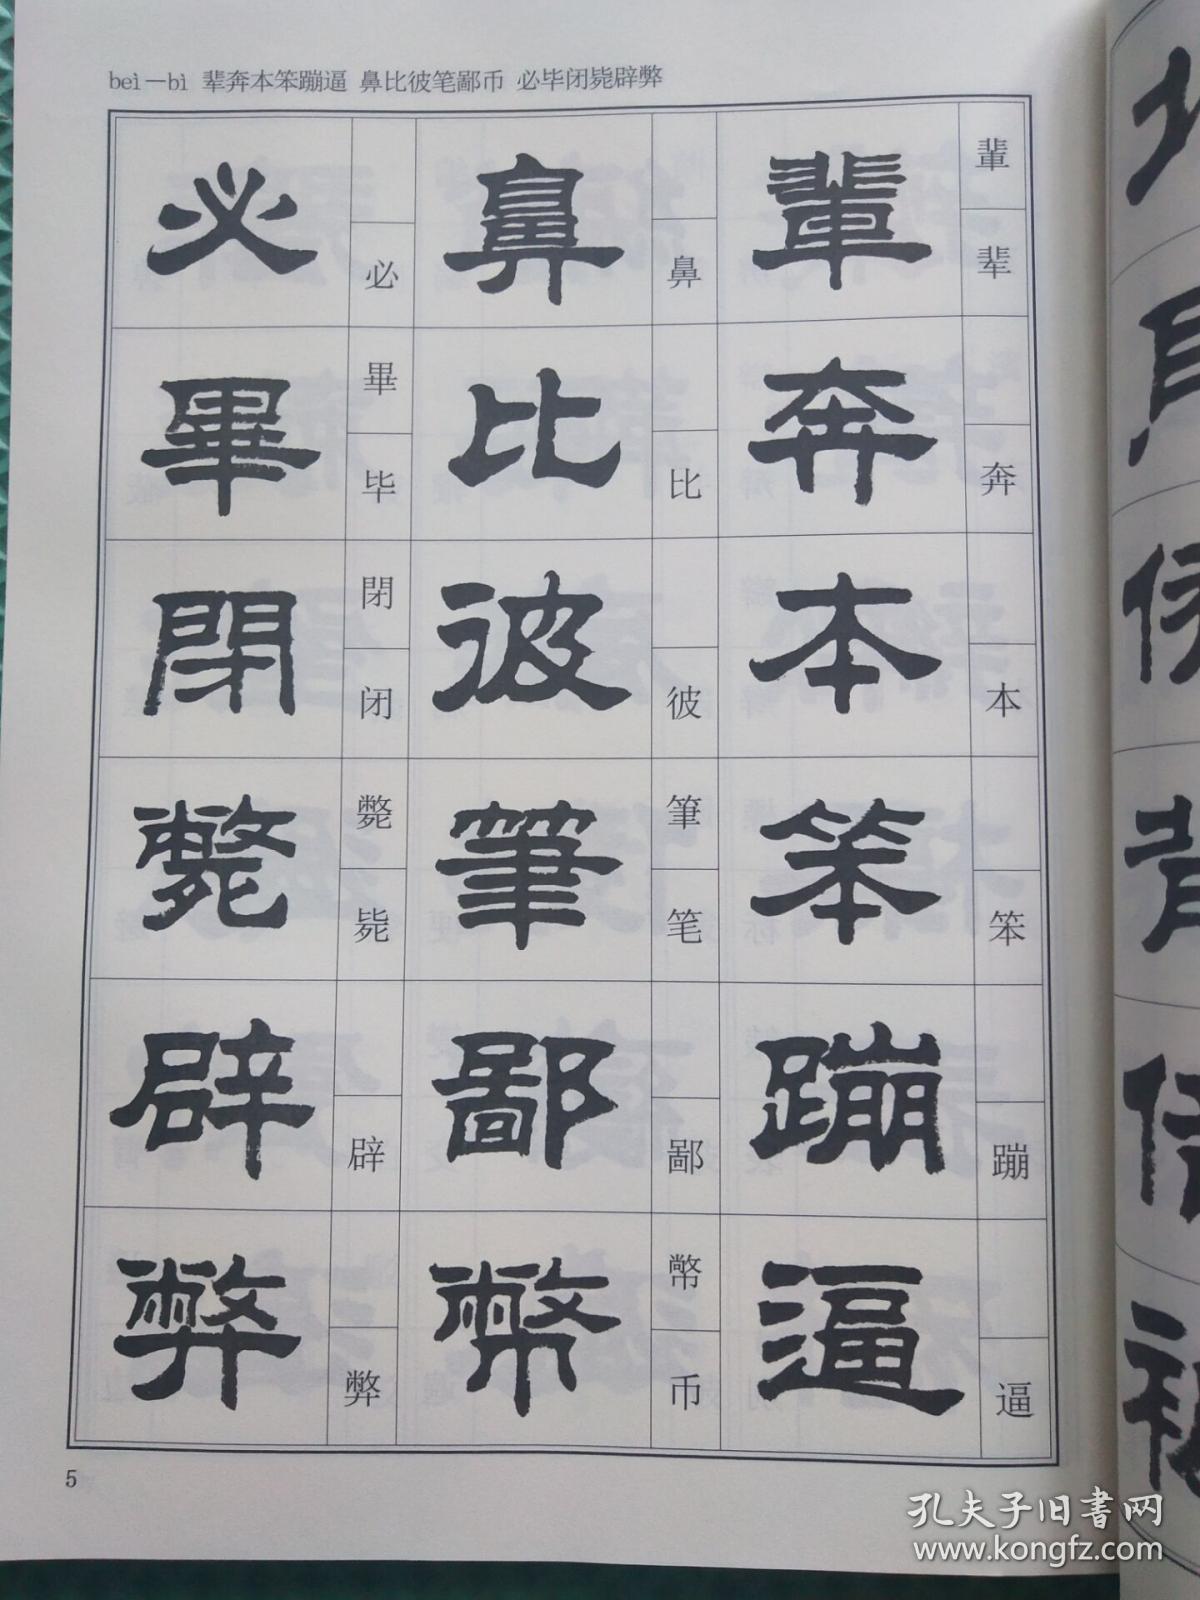 beì—bì 辈奔本笨蹦逼 鼻比彼笔鄙币 必毕闭毙辟弊
輩 輩 辈
奔 奔
本 本
笨 笨
蹦 蹦
逼 逼
鼻 鼻
比 比
彼 彼
筆 筆 笔
鄙 鄙
幣 幣 币
必 必
畢 畢 毕
閉 閉 闭
斃 斃 毙
辟 辟
弊 弊
5
孔夫子旧书网
www.kongfz.com